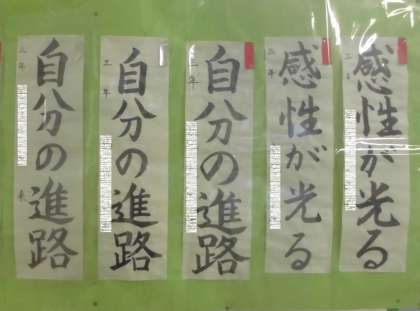 感性が光る
三年
感性が光る
三年
自分の進路
三年
自分の進路
三年
自分の進路
三年